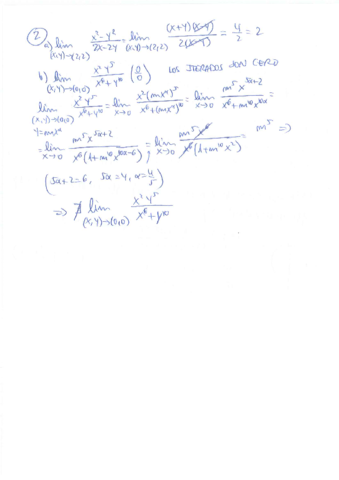 ② a) lim_{(x,y)→(2,2)} (x²-y²)/(2x-2y) = lim_{(x,y)→(2,2)} ((x+y)(x-y))/(2(x-y)) = 4/2 = 2
b) lim_{(x,y)→(0,0)} (x²y⁵)/(x⁶+y¹⁰) (0/0) LOS ITERADOS SON CERO
lim_{(x,y)→(0,0), y=mx^α} (x²y⁵)/(x⁶+y¹⁰) = lim_{x→0} (x²(mx^α)⁵)/(x⁶+(mx^α)¹⁰) = lim_{x→0} (m⁵x^{5α+2})/(x⁶+m¹⁰x^{10α}) =
= lim_{x→0} (m⁵x^{5α+2})/(x⁶(1+m¹⁰x^{10α-6})) = lim_{x→0} (m⁵x⁶)/(x⁶(1+m¹⁰x²)) = m⁵ ⇒
(5α+2=6, 5α=4, α=4/5)
⇒ ∄ lim_{(x,y)→(0,0)} (x²y⁵)/(x⁶+y¹⁰)